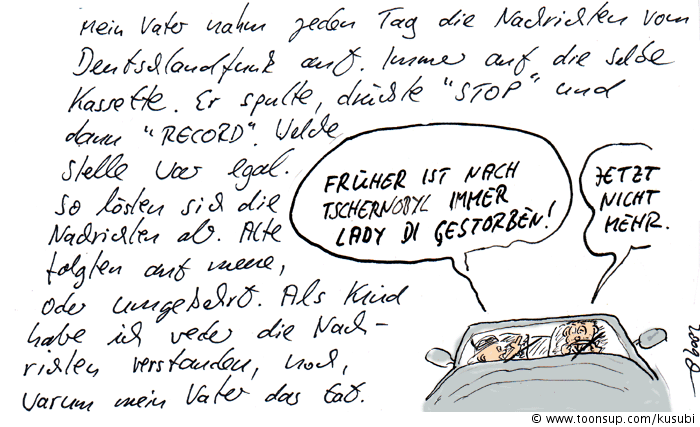 Mein Vater nahm jeden Tag die Nachrichten vom
Deutschlandfunk auf. Immer auf die selbe
Kassette. Er spulte, drückte "STOP" und
dann "RECORD". Welche
Stelle war egal.
So lösten sich die
Nachrichten ab. Alte
folgten auf neue,
oder umgekehrt. Als Kind
habe ich weder die Nach-
richten verstanden, noch,
warum mein Vater das tat.
FRÜHER IST NACH
TSCHERNOBYL IMMER
LADY DI GESTORBEN!
JETZT
NICHT
MEHR.
© www.toonsup.com/kusubi